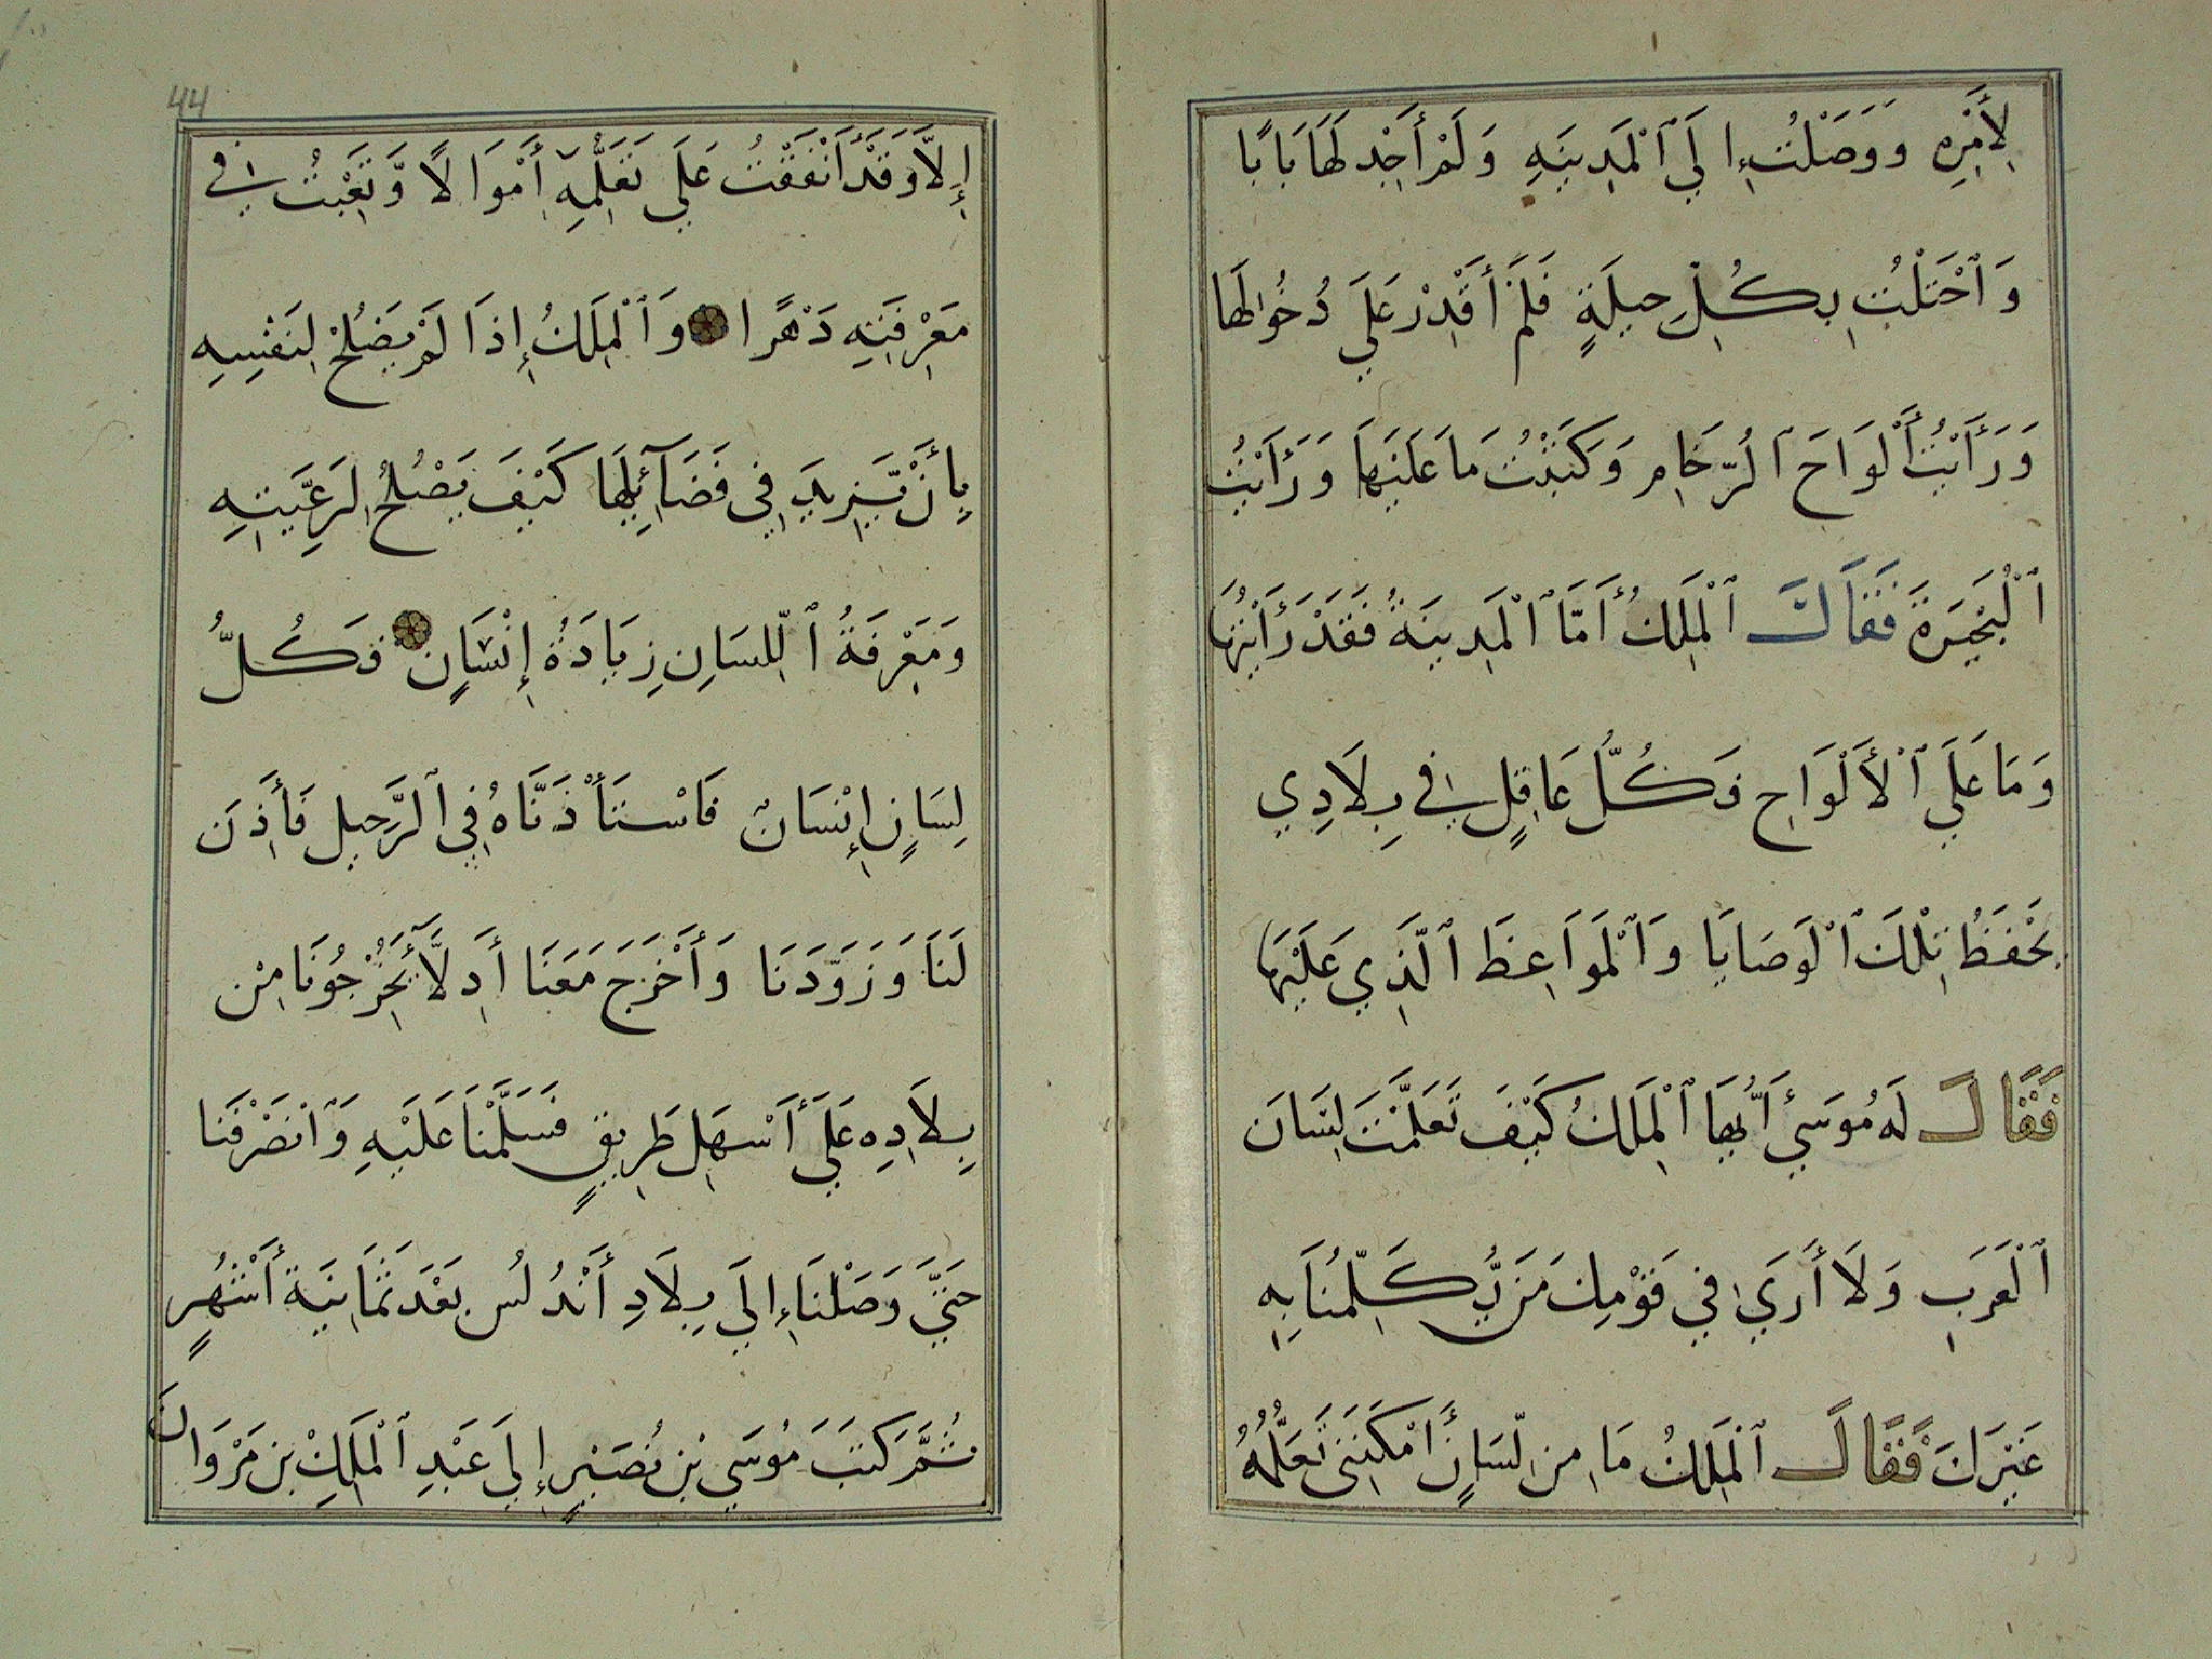 لِأَمْرِهِ وَوَصَلْتُ إِلَى ٱلْمَدِينَةِ وَلَمْ أَجِدْ لَهَا بَابًا
وَٱحْتَلْتُ بِكُلِّ حِيلَةٍ فَلَمْ أَقْدِرْ عَلَي دُخُولِهَا
وَرَأَيْتُ أَلْوَاحَ ٱلرُّخَامِ وَكَتَبْتُ مَا عَلَيْهَا وَرَأَيْتُ
ٱلْبُحَيْرَةَ فَقَالَ ٱلْمَلِكُ أَمَّا ٱلْمَدِينَةُ فَقَدْ رَأَيْتُهَا
وَمَا عَلَي ٱلْأَلْوَاحِ فَكُلُّ عَاقِلٍ فِي بِلَادِي
يَحْفَظُ تِلْكَ ٱلْوَصَايَا وَٱلْمَوَاعِظَ ٱلَّذِي عَلَيْهَا
فَقَالَ لَهُ مُوسَي أَيُّهَا ٱلْمَلِكُ كَيْفَ تَعَلَّمْتَ لِسَانَ
ٱلْعَرَبِ وَلَا أَرَي فِي قَوْمِكَ مَن يُّكَلِّمُنَا بِهِ
غَيْرَكَ فَقَالَ ٱلْمَلِكُ مَا مِن لِّسَانٍ أَمْكَنَنِي تَعَلُّمُهُ
إِلَّا وَقَدْ أَنْفَقْتُ عَلَي تَعَلُّمِهِ أَمْوَالًا وَّتَعِبْتُ فِي
مَعْرِفَتِهِ دَهْرًا وَٱلْمَلِكُ إِذَا لَمْ يَصْلُحْ لِنَفْسِهِ
بِأَنْ يَّزِيدَ فِي فَضَآئِلِهَا كَيْفَ يَصْلُحُ لِرَعِيَّتِهِ
وَمَعْرِفَةُ ٱللِّسَانِ زِيَادَةُ إِنْسَانٍ فَكُلُّ
لِسَانٍ إِنْسَانٌ فَاسْتَأْذَنَّاهُ فِي ٱلرَّحِيلِ فَأَذِنَ
لَنَا وَزَوَّدَنَا وَأَخْرَجَ مَعَنَا أَدِلَّآءَ يُخْرِجُونَا مِنْ
بِلَادِهِ عَلَي أَسْهَلِ طَرِيقٍ فَسَلَّمْنَا عَلَيْهِ وَٱنْصَرَفْنَا
حَتَّي وَصَلْنَا إِلَي بِلَادِ أَنْدُلُسِ بَعْدَ ثَمَانِيَةِ أَشْهُرٍ
ثُمَّ كَتَبَ مُوسَي بْنُ نُصَيْرٍ إِلَي عَبْدِ ٱلْمَلِكِ بْنِ مَرْوَانَ
44